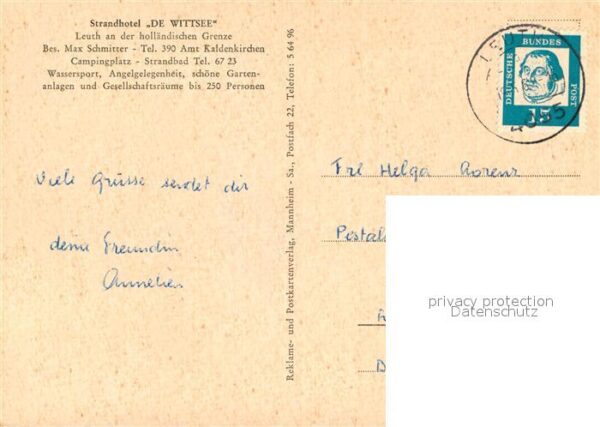 Strandhotel „DE WITTSEE"
Leuth an der holländischen Grenze
Bes. Max Schmitter - Tel. 390 Amt Kaldenkirchen
Campingplatz - Strandbad Tel. 67 23
Wassersport, Angelgelegenheit, schöne Garten-
anlagen und Gesellschaftsräume bis 250 Personen
Viele Grüsse sendet dir
deine Freundin
Annelies
Reklame- und Postkartenverlag, Mannheim - Sa., Postfach 22, Telefon: 5 64 96
DEUTSCHE BUNDES POST
15
LEUTH
4055
Frl Helga
privacy protection
Datenschutz